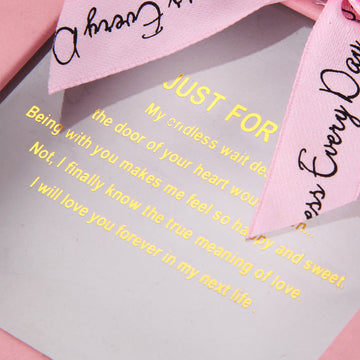 s Every D
JUST FOR
My endless wait
the door of your heart
Being with you makes me feel so happy and sweet
Not, I finally know the true meaning of love.
I will love you forever in my next life
ess Every Day